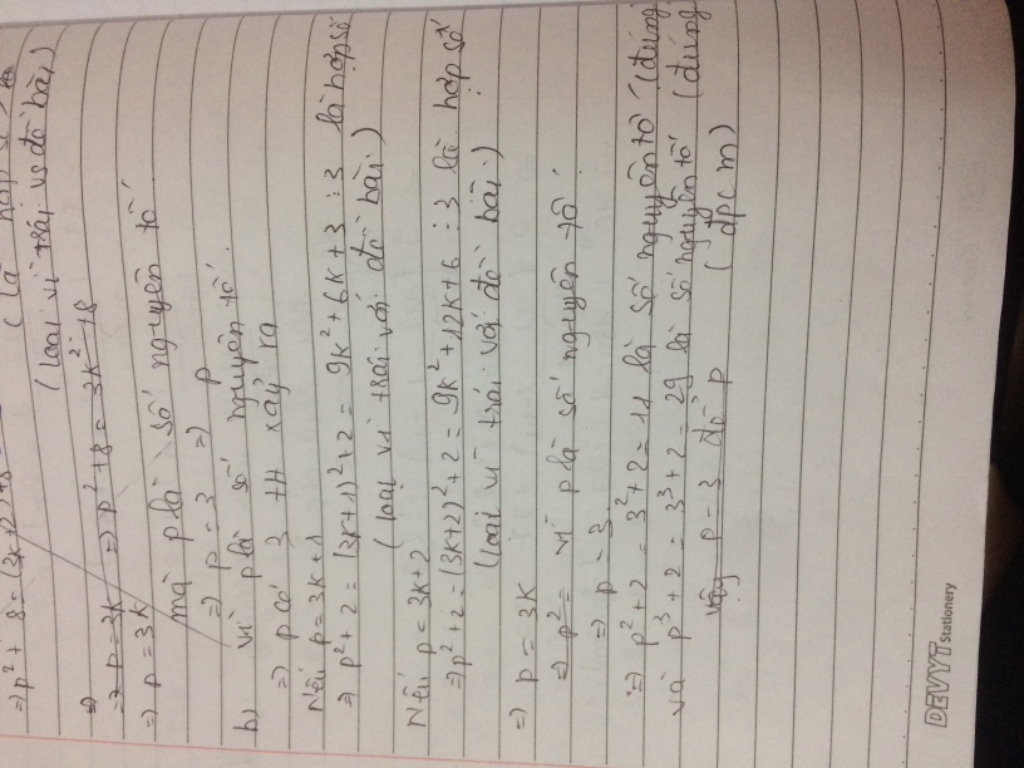 ⇒ p² + 8 = (3k+2)² + 8
(loại vì trái vs đề bài)
⇒
⇒ p = 3k ⇒ p² + 8 = 3k² + 8
⇒ p = 3k
mà p là số nguyên tố
⇒ p = 3 ⇒ p
b) Vì p là số nguyên tố.
⇒ p có 3 TH xảy ra
Nếu p = 3k+1
⇒ p² + 2 = (3k+1)² + 2 = 9k² + 6k + 3 ⋮ 3 là hợp số
(loại vì trái với đề bài.)
Nếu p = 3k+2
⇒ p² + 2 = (3k+2)² + 2 = 9k² + 12k + 6 ⋮ 3 là hợp số
(loại vì trái với đề bài.)
⇒ p = 3k
⇒ p² = vì p là số nguyên tố.
⇒ p = 3
⇒ p² + 2 = 3² + 2 = 11 là số nguyên tố (đúng
và p³ + 2 = 3³ + 2 = 29 là số nguyên tố (đúng
Vậy p = 3 để p (đpcm)
DEVYT Stationery